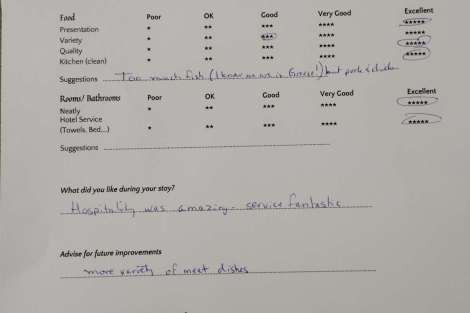 Food Poor OK Good Very Good Excellent
Presentation * ** *** **** *****
Variety * ** *** **** *****
Quality * ** *** **** *****
Kitchen (clean) * ** *** **** *****
Suggestions Too much fish (I know we are in Greece!) but pork &
Rooms/ Bathrooms Poor OK Good Very Good Excellent
Neatly * ** *** **** *****
Hotel Service
(Towels, Bed...) * ** *** **** *****
Suggestions
What did you like during your stay?
Hospitality was amazing. service fantastic
Advise for future improvements
more variety of meat dishes